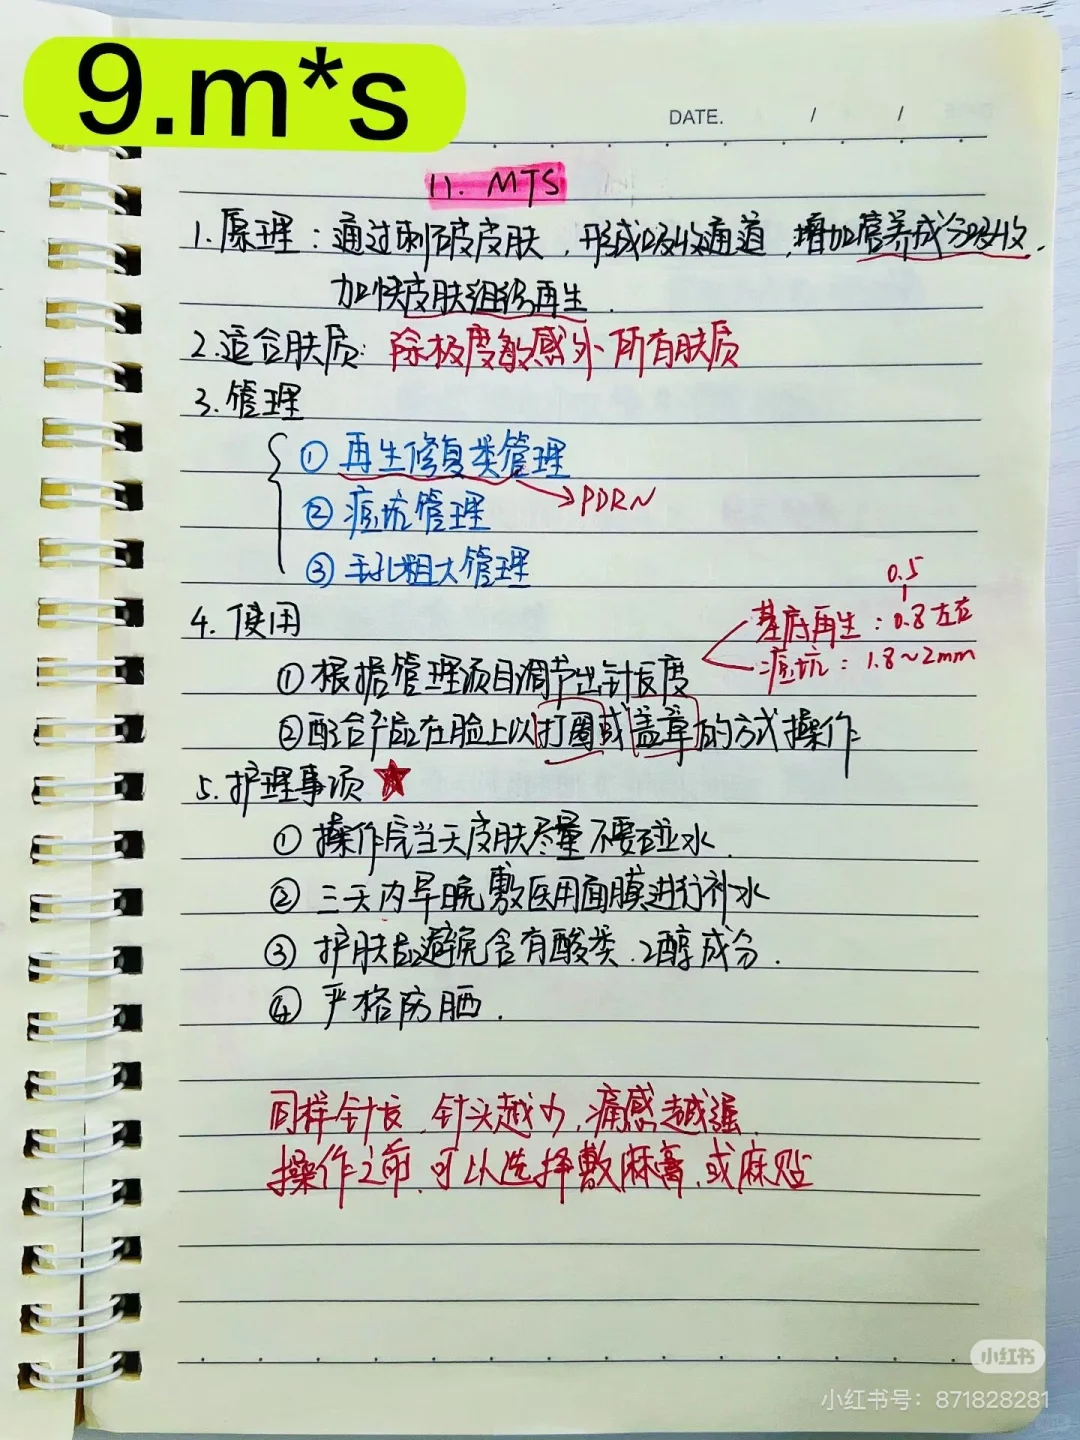 9.m*s
DATE. / /
11. MTS
1.原理：通过刺破皮肤，形成吸收通道，增加营养成分吸收，
加快皮肤组织再生.
2.适合肤质：除极度敏感外所有肤质
3.管理
①再生修复类管理
→PDRN
②痘坑管理
③毛孔粗大管理
0.5
4.使用
基底再生：0.8左右
①根据管理项目调节出针长度
痘坑：1.8~2mm
②配合产品在脸上以打圈或盖章的方式操作
5.护理事项★
①操作完当天皮肤尽量不要碰水.
②三天内早晚敷医用面膜进行补水
③护肤品避免含有酸类.A醇成分.
④严格防晒.
同样针长,针头越少,痛感越强.
操作之前,可以选择敷麻膏,或麻贴
小红书
小红书号：871828281